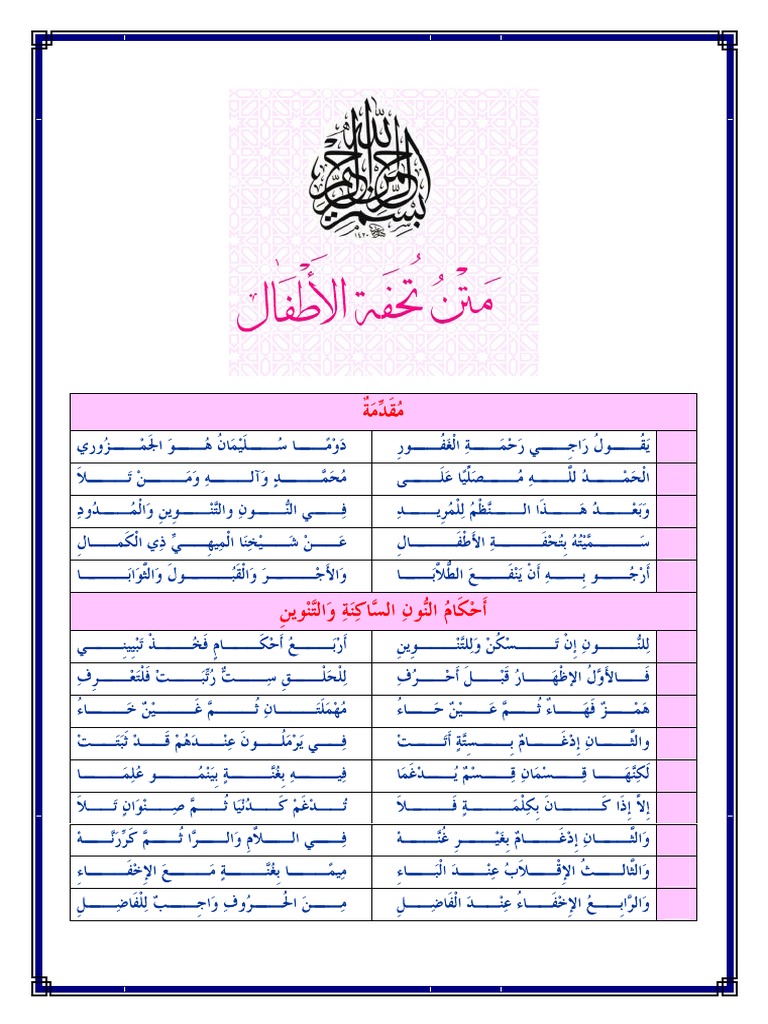 بسم الله الرحمن الرحيم
مَتْنُ تُحْفَةِ الأَطْفَالِ
مُقَدِّمَةٌ
يَقُولُ رَاجِي رَحْمَةِ الْغَفُورِ دَوْمًا سُلَيْمَانُ هُوَ الْجَمْزُورِي
الْحَمْدُ للَّهِ مُصَلِّيًا عَلَى مُحَمَّدٍ وَآلِهِ وَمَنْ تَلاَ
وَبَعْدُ هَذَا النَّظْمُ لِلْمُرِيدِ فِي النُّونِ والتَّنْوِينِ وَالْمُدُودِ
سَمَّيْتُهُ بِتُحْفَةِ الأَطْفَالِ عَنْ شَيْخِنَا الْمِيهِيِّ ذِي الْكَمَالِ
أَرْجُو بِهِ أَنْ يَنْفَعَ الطُّلاَّبَا وَالأَجْرَ وَالْقَبُولَ وَالثَّوَابَا
أَحْكَامُ النُّونِ السَّاكِنَةِ وَالتَّنْوِينِ
لِلنُّونِ إِنْ تَسْكُنْ وَلِلتَّنْوِينِ أَرْبَعُ أَحْكَامٍ فَخُذْ تَبْيِينِي
فَالأَوَّلُ الإِظْهَارُ قَبْلَ أَحْرُفِ لِلْحَلْقِ سِتٌّ رُتِّبَتْ فَلْتَعْرِفِ
هَمْزٌ فَهَاءٌ ثُمَّ عَيْنٌ حَاءُ مُهْمَلَتَانِ ثُمَّ غَيْنٌ خَاءُ
والثَّانِ إِدْغَامٌ بِسِتَّةٍ أَتَتْ فِي يَرْمَلُونَ عِنْدَهُمْ قَدْ ثَبَتَتْ
لَكِنَّهَا قِسْمَانِ قِسْمٌ يُدْغَمَا فِيهِ بِغُنَّةٍ بِيَنْمُو عُلِمَا
إِلاَّ إِذَا كَانَ بِكِلْمَةٍ فَلاَ تُدْغَمْ كَدُنْيَا ثُمَّ صِنْوَانٍ تَلاَ
وَالثَّانِ إِدْغَامٌ بِغَيْرِ غُنَّهْ فِي اللاَّمِ وَالرَّا ثُمَّ كَرِّرَنَّهْ
وَالثَّالثُ الإِقْلاَبُ عِنْدَ الْبَاءِ مِيمًا بِغُنَّةٍ مَعَ الإِخْفَاءِ
وَالرَّابِعُ الإِخْفَاءُ عِنْدَ الْفَاضِلِ مِنَ الْحُرُوفِ وَاجِبٌ لِلْفَاضِلِ